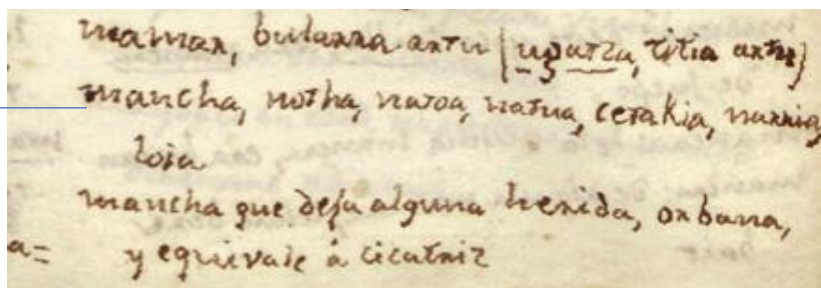 mamar, bularra artu (uzatza, titia artu)
mancha, notha, natoa, natua, cetakia, narria,
loia
mancha que deja alguna herida, orbana,
a= y equivale á cicatriz